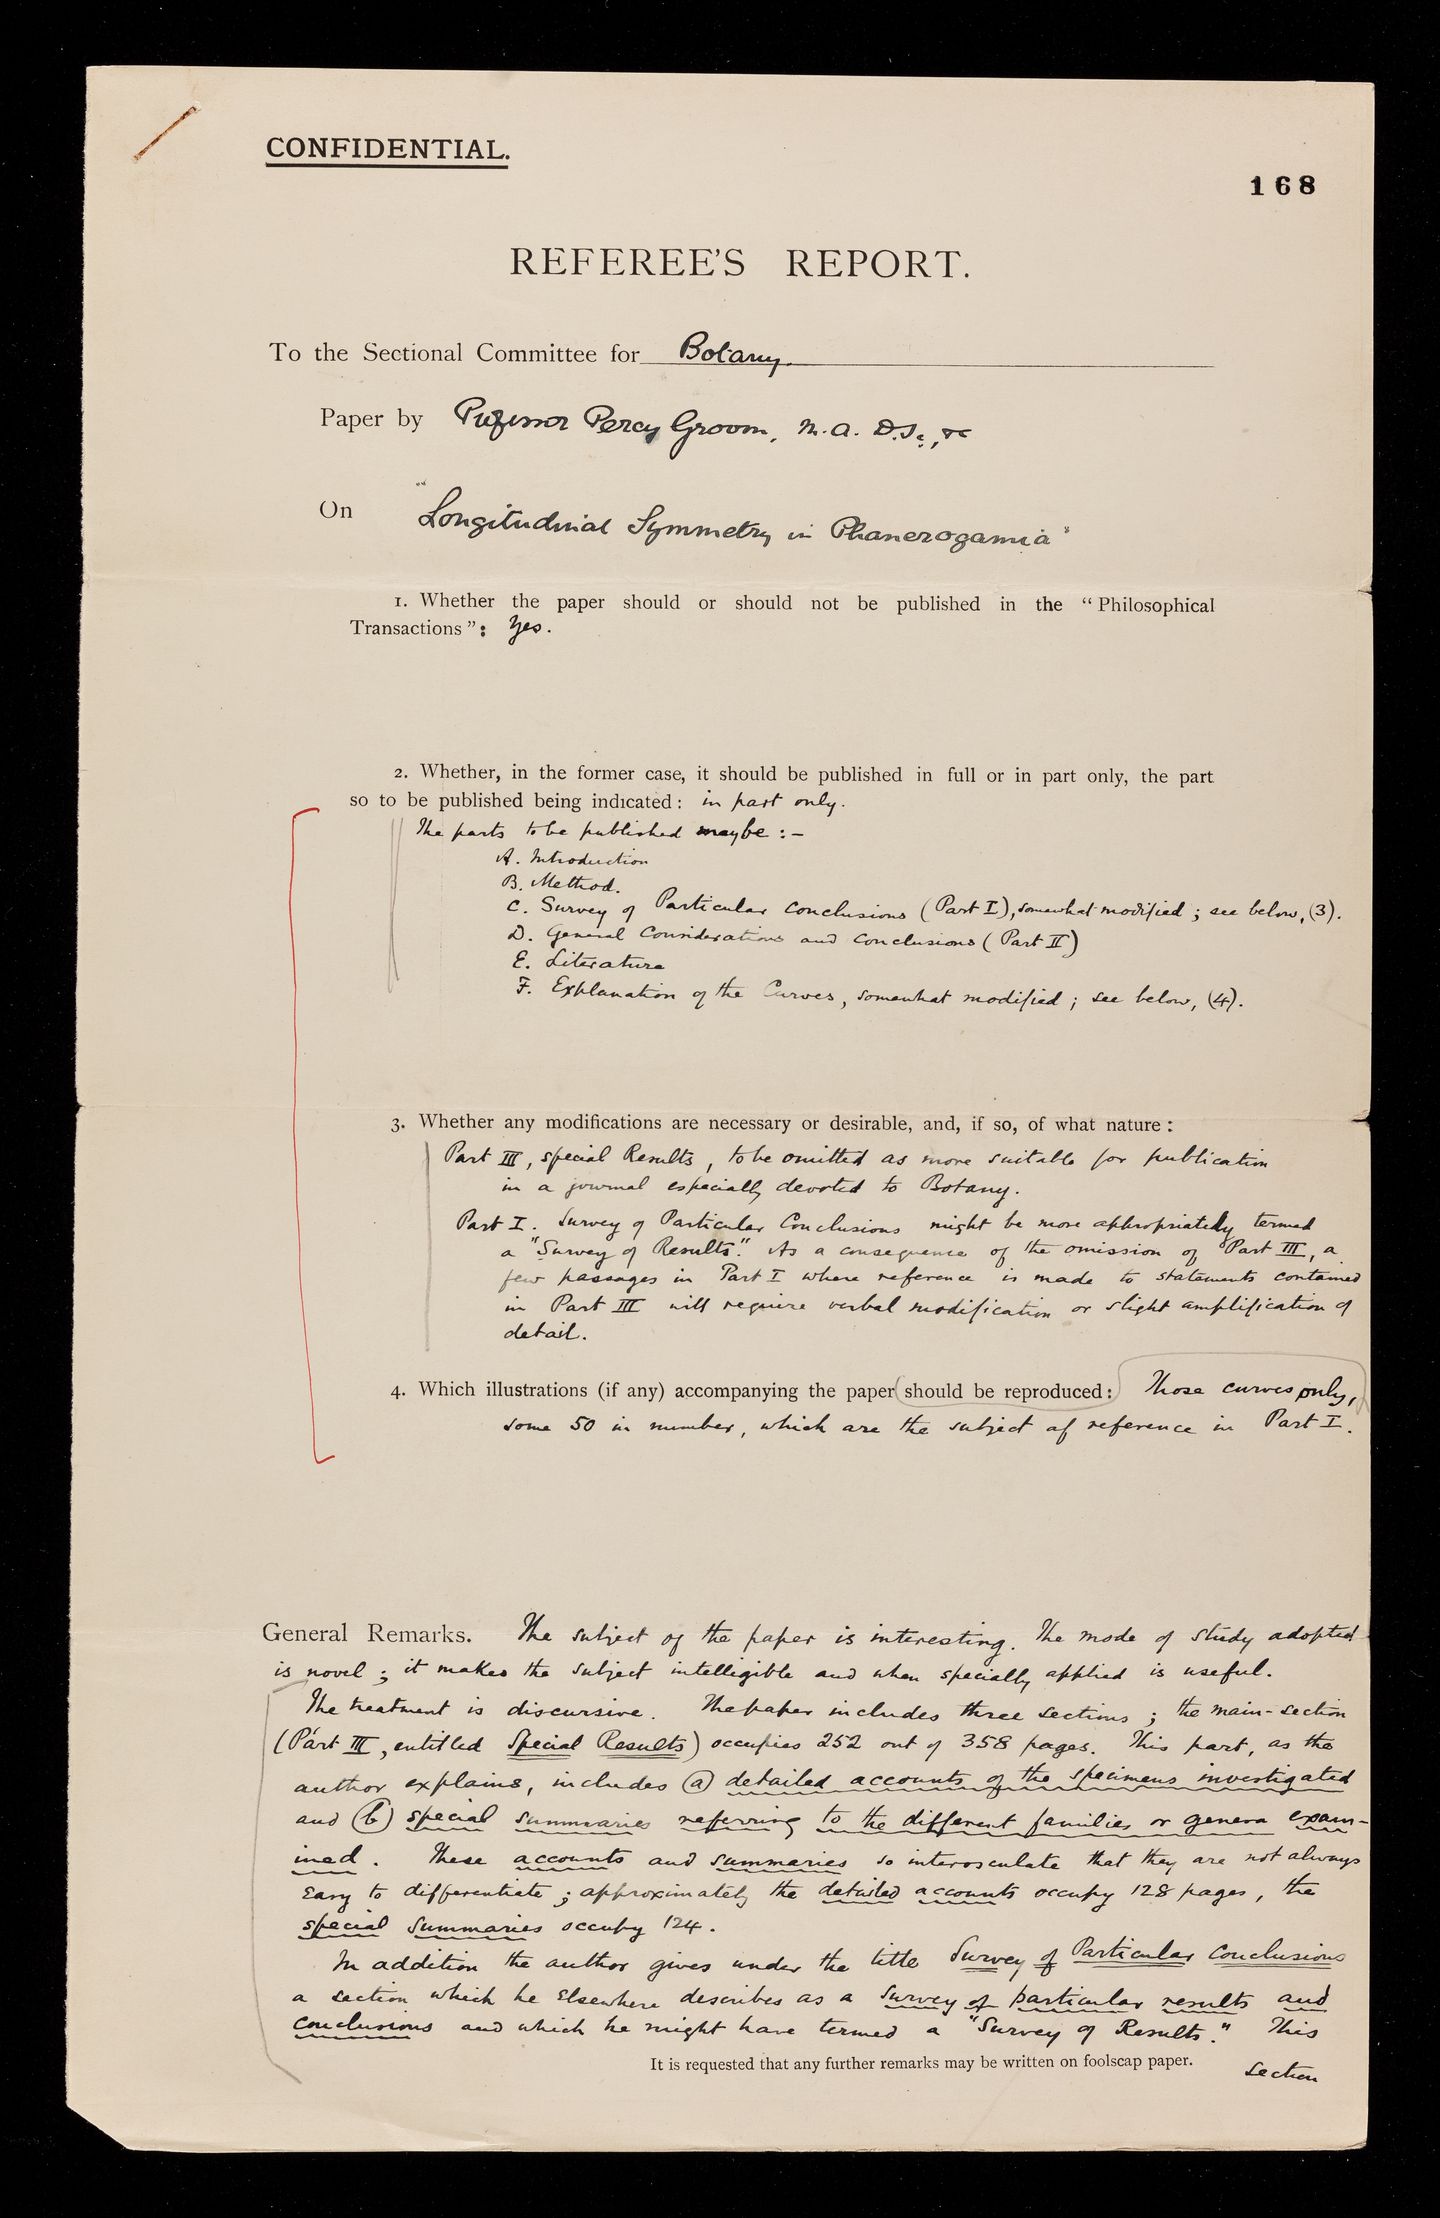 CONFIDENTIAL.
168
REFEREE'S REPORT.
To the Sectional Committee for Botany.
Paper by Professor Percy Groom, M.A. D.Sc., &c
On "Longitudinal Symmetry in Phanerogamia"
1. Whether the paper should or should not be published in the "Philosophical
Transactions": Yes.
2. Whether, in the former case, it should be published in full or in part only, the part
so to be published being indicated: in part only.
The parts to be published maybe :-
A. Introduction
B. Method.
C. Survey of Particular Conclusions (Part I), somewhat modified; see below, (3).
D. General Considerations and Conclusions (Part II)
E. Literature
F. Explanation of the Curves, somewhat modified; see below, (4).
3. Whether any modifications are necessary or desirable, and, if so, of what nature:
Part III, special Results, to be omitted as more suitable for publication
in a journal especially devoted to Botany.
Part I. Survey of Particular Conclusions might be more appropriately termed
a "Survey of Results". As a consequence of the omission of Part III, a
few passages in Part I where reference is made to statements contained
in Part III will require verbal modification or slight amplification of
detail.
4. Which illustrations (if any) accompanying the paper should be reproduced: Those curves only,
some 50 in number, which are the subject of reference in Part I.
General Remarks. The subject of the paper is interesting. The mode of study adopted
is novel; it makes the subject intelligible and when specially applied is useful.
The treatment is discursive. The paper includes three sections; the main-section
(Part III, entitled Special Results) occupies 252 out of 358 pages. This part, as the
author explains, includes (a) detailed accounts of the specimens investigated
and (b) special summaries referring to the different families or genera exam-
ined. These accounts and summaries so interosculate that they are not always
easy to differentiate; approximately the detailed accounts occupy 128 pages, the
special summaries occupy 124.
In addition the author gives under the title Survey of Particular Conclusions
a section which he elsewhere describes as a survey of particular results and
conclusions and which he might have termed a "Survey of Results." This
It is requested that any further remarks may be written on foolscap paper.
section